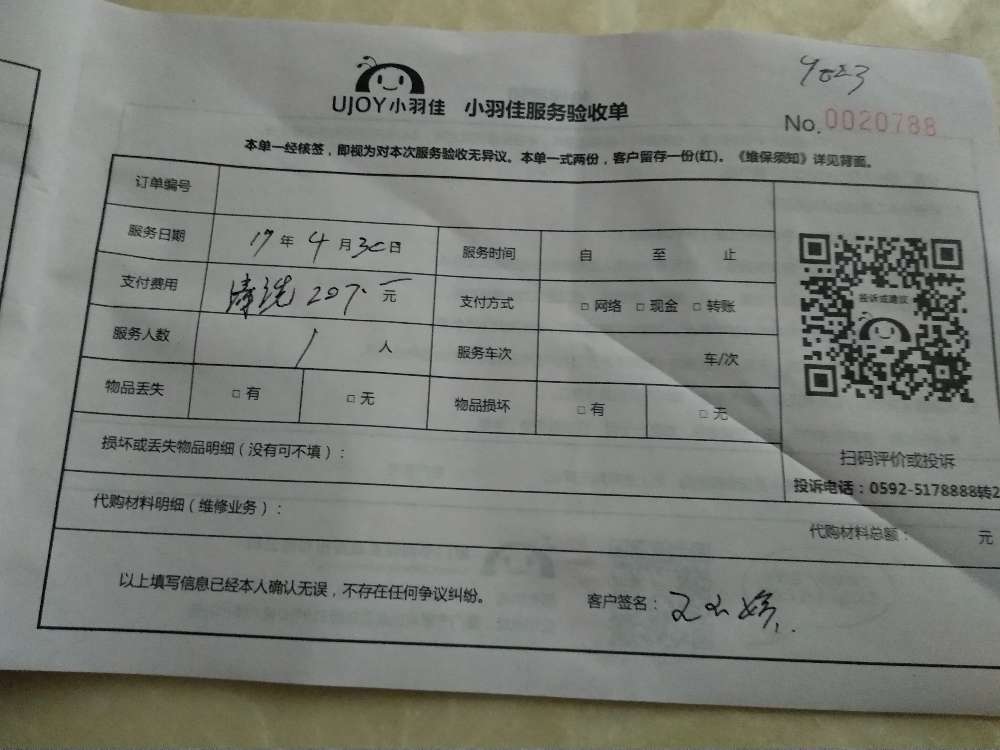 UJOY小羽佳 小羽佳服务验收单
No.0020788
本单一经核签，即视为对本次服务验收无异议。本单一式两份，客户留存一份(红)。《维保须知》详见背面。
订单编号
服务日期 17年4月30日 服务时间 自 至 止
支付费用 清洗 207.一元 支付方式 □ 网络 □ 现金 □ 转账
服务人数 1 人 服务车次 车/次
物品丢失 □ 有 □ 无 物品损坏 □ 有 □ 无
投诉或建议
损坏或丢失物品明细（没有可不填）：
扫码评价或投诉
投诉电话：0592-5178888转2
代购材料明细（维修业务）：
代购材料总额： 元
以上填写信息已经本人确认无误，不存在任何争议纠纷。 客户签名：